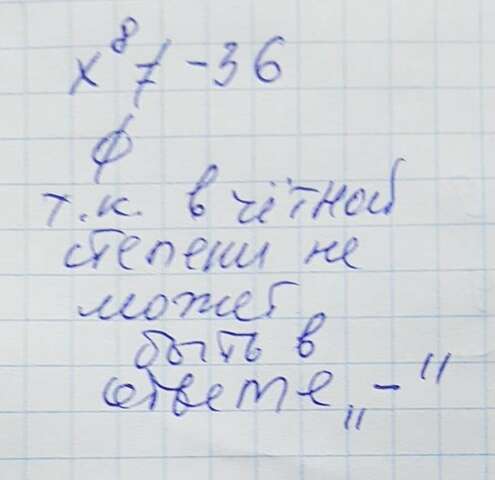 x⁸ ≠ -36
∅
т.к. в чётной
степени не
может
быть в
ответе „-"